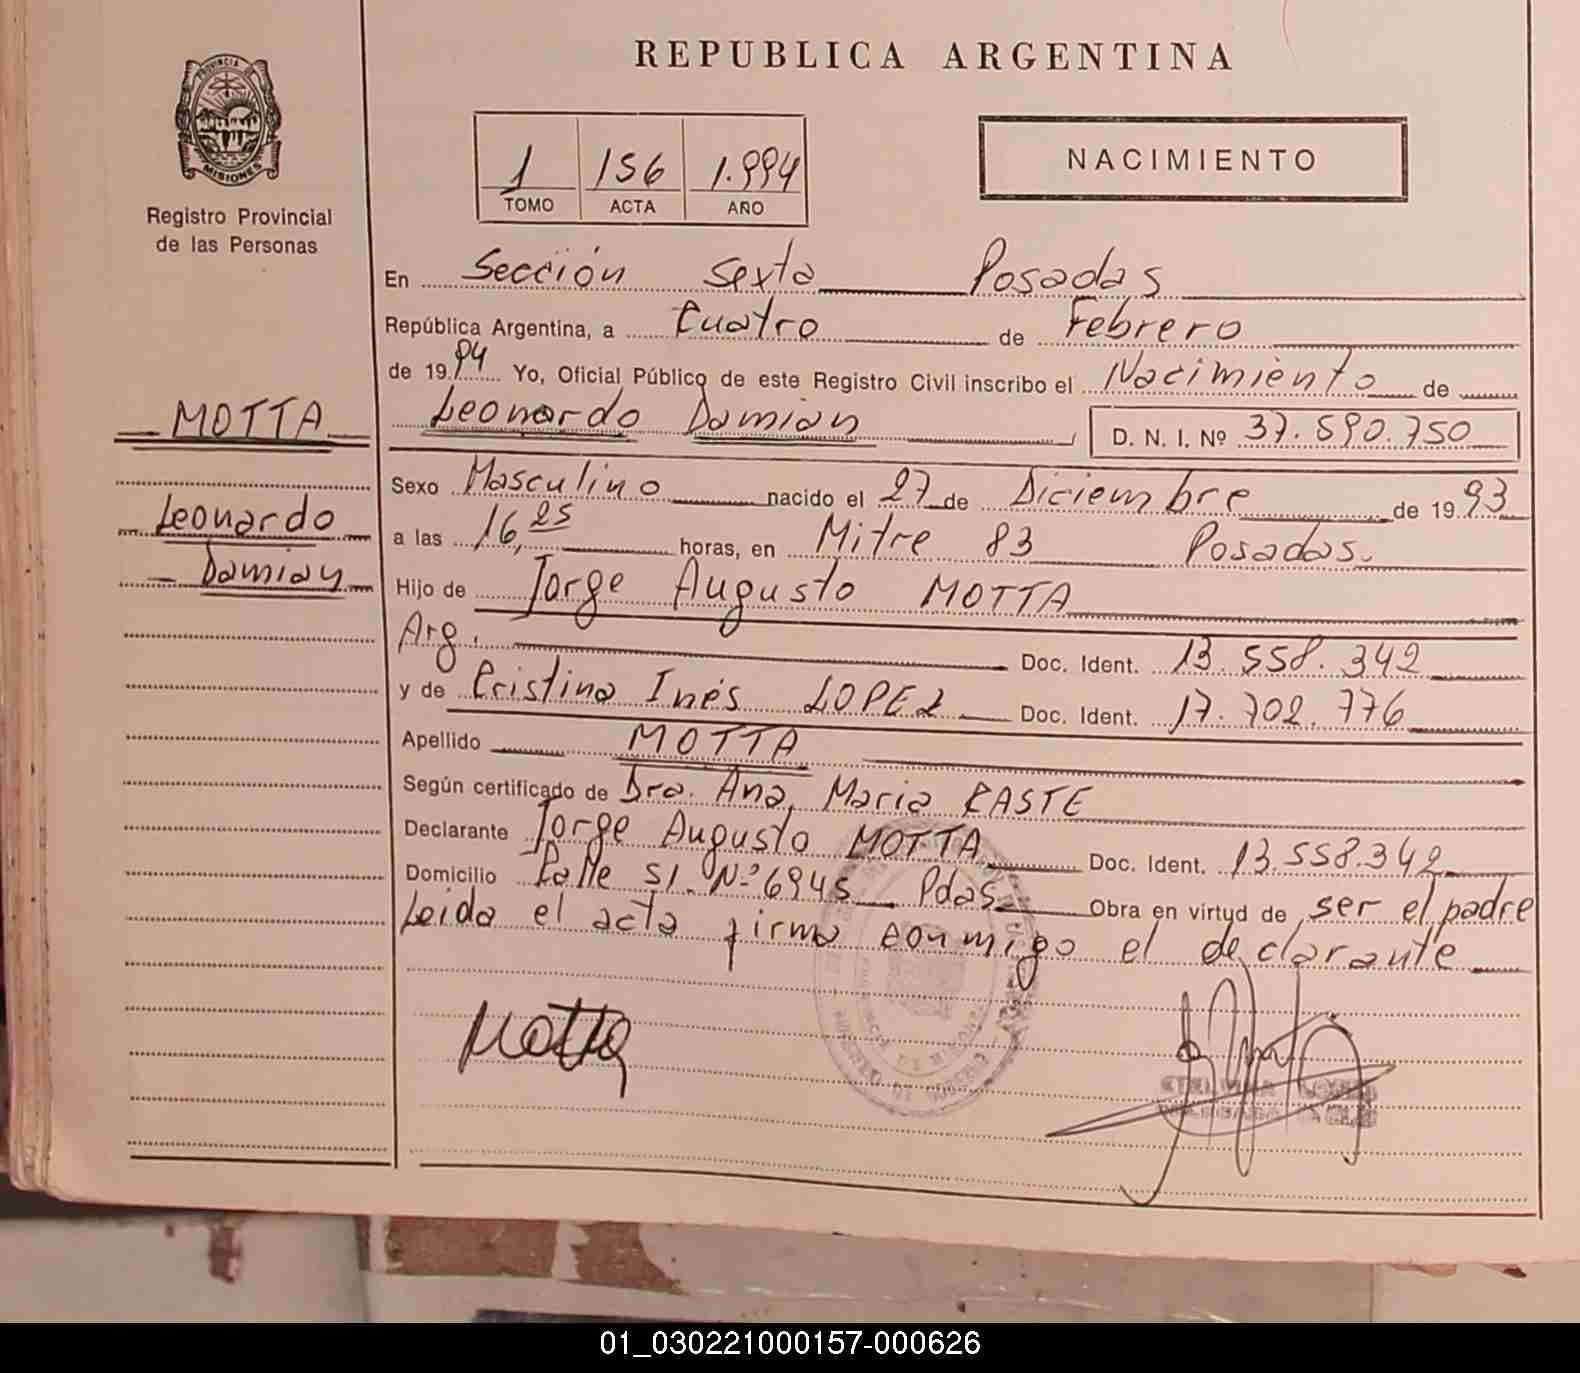 REPUBLICA ARGENTINA
PROVINCIA DE
MISIONES
Registro Provincial
de las Personas
1 156 1.994
TOMO ACTA AÑO
NACIMIENTO
En Sección Sexta Posadas
República Argentina, a Cuatro de Febrero
de 1994 Yo, Oficial Público de este Registro Civil inscribo el Nacimiento de
Leonardo Damian D. N. I. Nº 37.590.750
MOTTA
Leonardo
Damian
Sexo Masculino nacido el 27 de Diciembre de 1993
a las 16,25 horas, en Mitre 83 Posadas.
Hijo de Jorge Augusto MOTTA
Arg. Doc. Ident. 13.558.342
y de Cristina Inés LOPEZ Doc. Ident. 17.702.776
Apellido MOTTA
Según certificado de Dra. Ana Maria RASTE
Declarante Jorge Augusto MOTTA Doc. Ident. 13.558.342
Domicilio Calle S/. Nº 6945 Pdas. Obra en virtud de ser el padre
Leida el acta firma conmigo el declarante
Motta
01_030221000157-000626